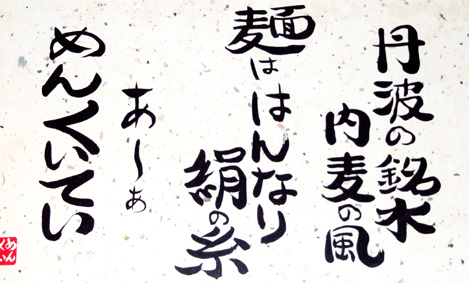 丹波の銘水
内麦の風
麺ははんなり
絹の糸
あ〜ぁ
めんくいてい
めん
くい